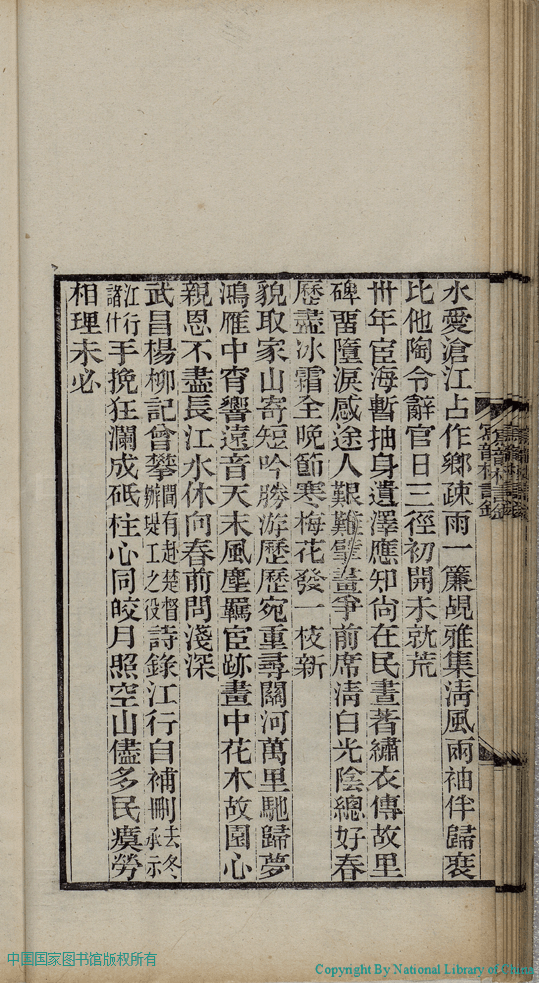 水愛滄江占作鄉疎雨一簾覘雅集淸風兩袖伴歸裝
比他陶令辭官日三徑初開未就荒
卅年宦海暫抽身遺澤應知尙在民晝著繡衣傳故里
碑畱墮淚感途人艱難擘畫爭前席淸白光陰總好春
歷盡冰霜全晩節寒梅花發一枝新
貌取家山寄短吟勝游歷歷宛重尋關河萬里馳歸夢
鴻雁中宵響遠音天末風塵羈宦跡畫中花木故園心
親恩不盡長江水休向春前問淺深
武昌楊柳記曾攀聞有赴楚督辦堤工之役詩錄江行自補刪去冬承示
江行諸什手挽狂瀾成砥柱心同皎月照空山儘多民瘼勞
相理未必
中国国家图书馆版权所有
Copyright By National Library of China